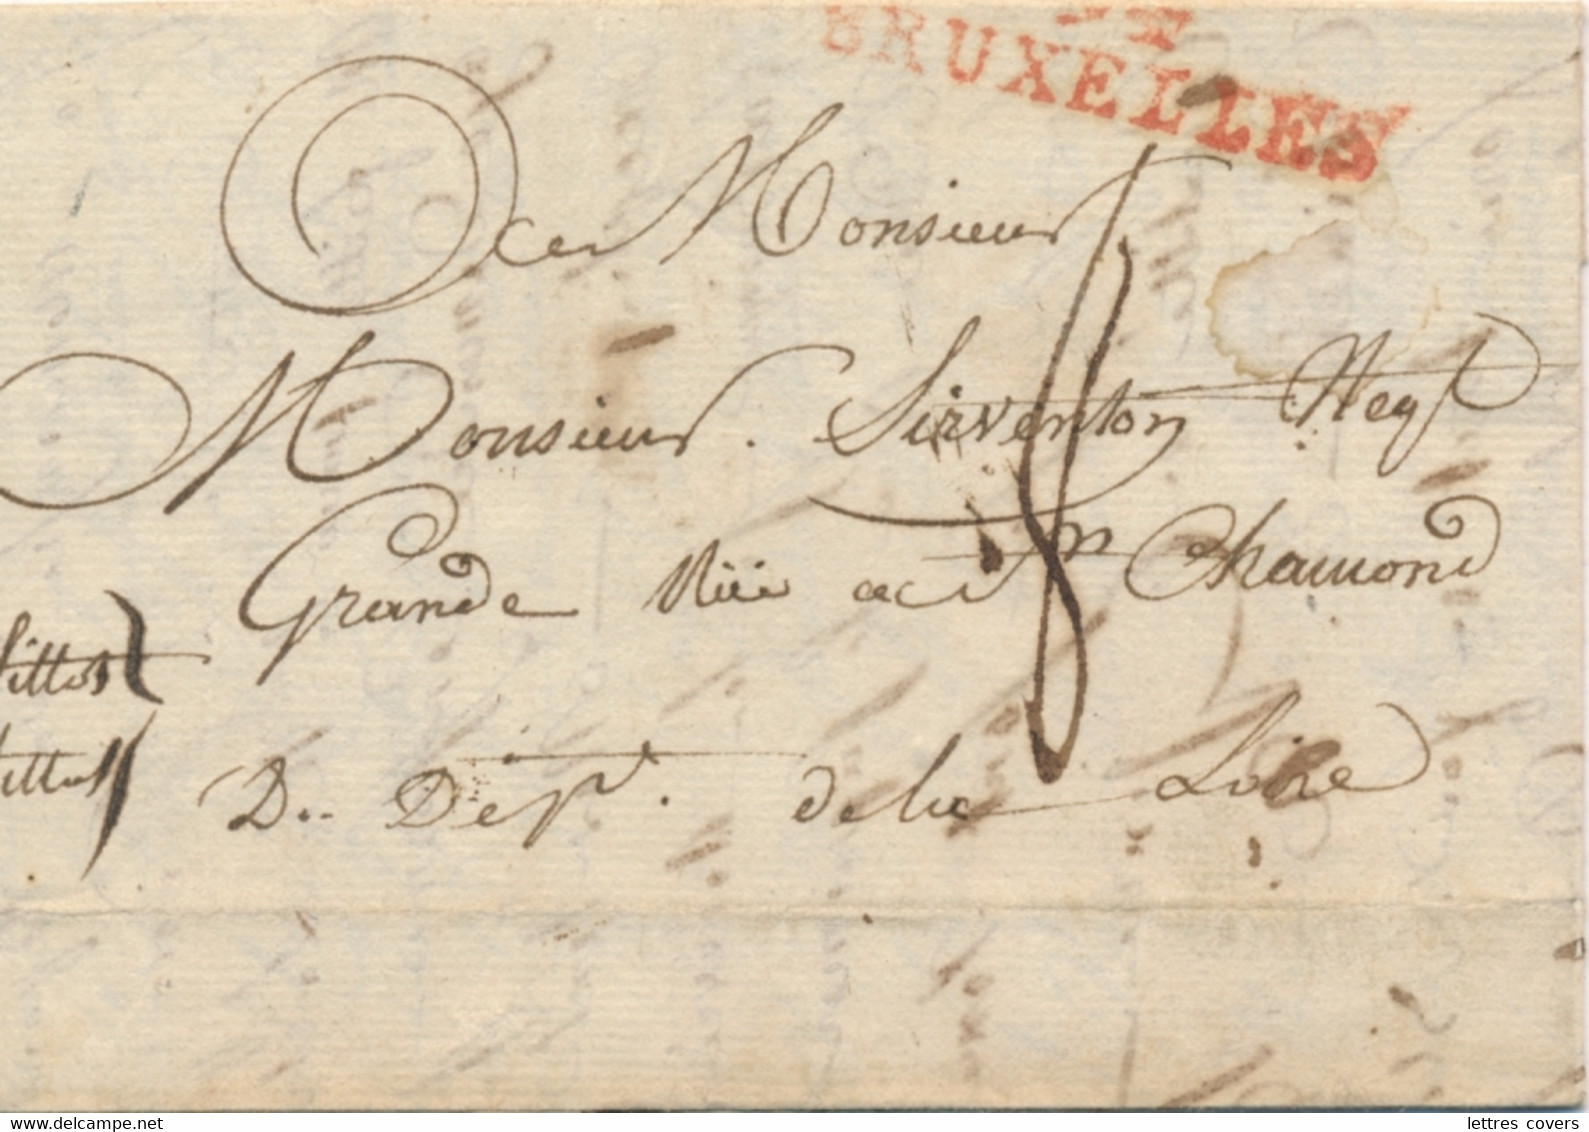 94
BRUXELLES
a Monsieur
Monsieur. Sirventon Neg.t
Grande Rüe a S.t Chamond
D.. Dep.t. de la Loire
8
Delcampe.net
lettres covers